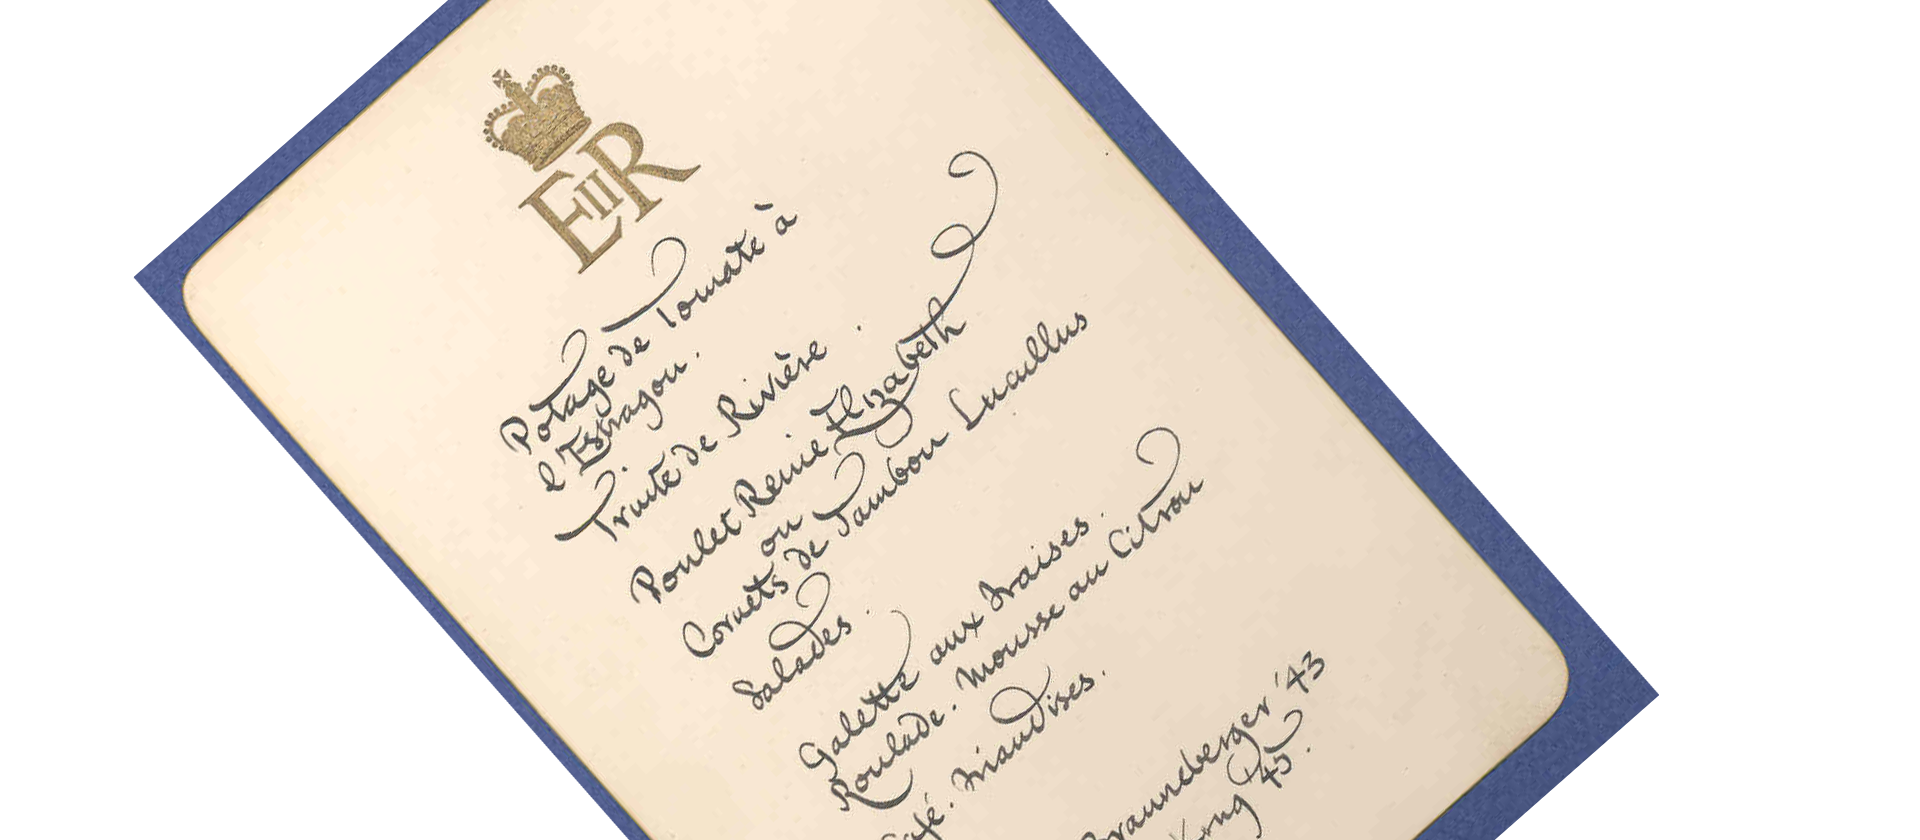 EIIR
Potage de Tomate à
l'Estragon.
Truite de Rivière.
Poulet Reine Elizabeth
ou
Cornets de Jambon Lucullus
Salades.
Galette aux Fraises.
Roulade. Mousse au Citron
Café. Friandises.
Brauneberger '43
Krug '45.